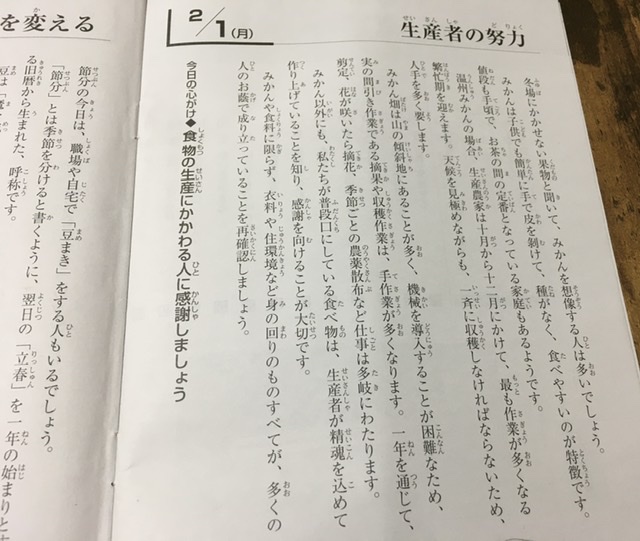 生産者の努力
2/1(月)
冬場にかかせない果物と聞いて、みかんを想像する人は多いでしょう。
みかんは子供でも簡単に手で皮を剝けて、種がなく、食べやすいのが特徴です。
値段も手頃で、お茶の間の定番となっている家庭もあるようです。
温州みかんの場合、生産農家は十月から十二月にかけて、最も作業が多くなる
繁忙期を迎えます。天候を見極めながらも、一斉に収穫しなければならないため、
人手を多く要します。
みかん畑は山の傾斜地にあることが多く、機械を導入することが困難なため、
実の間引き作業である摘果や収穫作業は、手作業が多くなります。一年を通じて、
剪定、花が咲いたら摘花、季節ごとの農薬散布など仕事は多岐にわたります。
みかん以外にも、私たちが普段口にしている食べ物は、生産者が精魂を込めて
作り上げていることを知り、感謝を向けることが大切です。
みかんや食料に限らず、衣料や住環境など身の回りのものすべてが、多くの
人のお蔭で成り立っていることを再確認しましょう。
今日の心がけ◆食物の生産にかかわる人に感謝しましょう
を変える
節分の今日は、職場や自宅で「豆まき」をする人もいるでしょう。
「節分」とは季節を分けると書くように、翌日の「立春」を一年の始まりと
る旧暦から生まれた、呼称です。